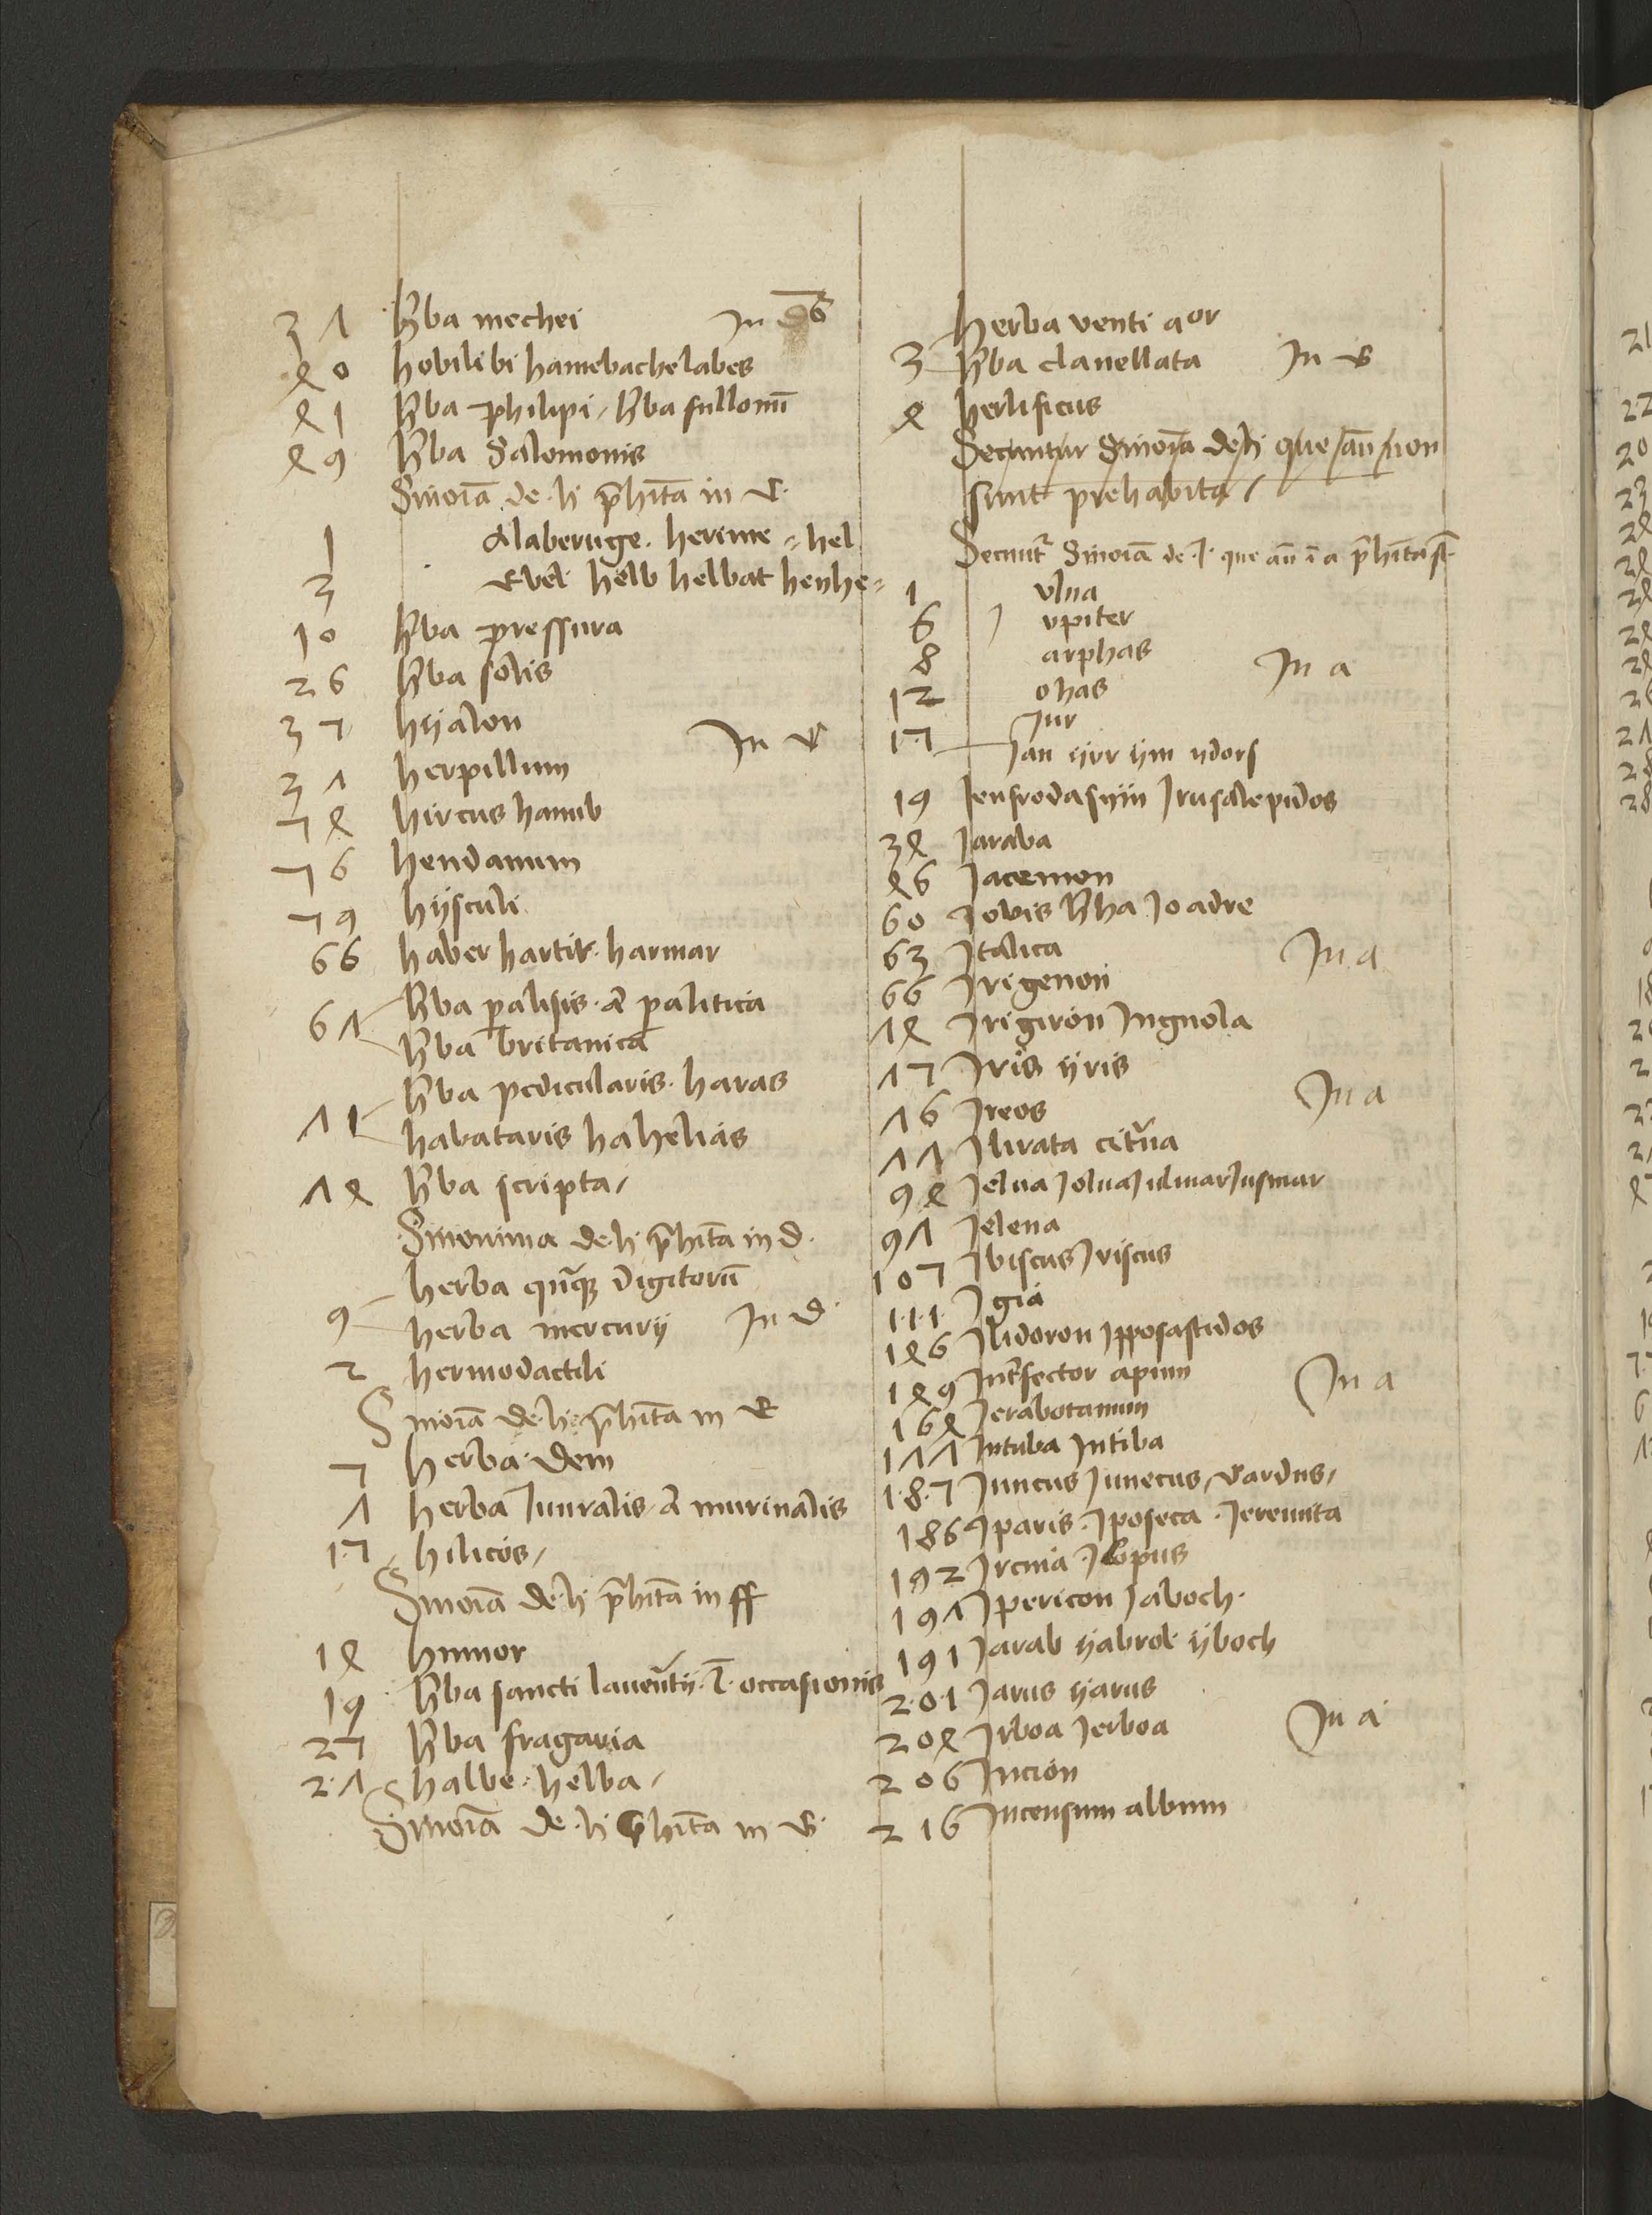 37 hba mechei In d6
40 hobilibi hamebachelabes
41 hba philipi / hba fullonū
49 hba Salomonis
Sinoīa de h p̄hita in
1 Alaberuge · herime = hel
3 helb helbat henhe=
10 hba pressura
26 hba solis
35 hÿalon
37 herpillum In
54 hircus hanub
56 hendanum
59 hÿsculi
66 haber hartit · harmar
67 hba palisis · palitica
hba britanica
71 hba pedicularis · haras
habataris hahelias
74 hba scripta /
Sinonima de h p̄hita in d ·
9 herba quīqꝫ digitorū
herba mercurij In d ·
2 hermodactili
Sinoīa de h p̄hita in
5 herba · dem
7 herba Iunralis · murinalis
15 hilicos /
Sinoīa de h p̄hita in ff
14 humor
19 hba sancti laurētij · occasionis
25 hba fragaria
27 halbe · helba /
Sinoīa de h p̄hita in
herba venti aor
3 hba clauellata In
4 herlificus
Secuntur Sinoīa de h que aū non
sunt prehabita /
Secunt͛ Sinoīa de · J · que aū ī a p̄hita sť
1 vlna
6 J vpiter
8 arphas In a
12 ohas
Jur
15 Jan ÿrr ÿm ydors
19 Jenfrodasÿin Jrusalepidos
34 Jaraba
46 Jacemon
60 Jovis hba Joadre
63 Jtalica In a
66 Jrigenon
74 Jrigiron Jngnola
75 Jris ÿris
76 Jreos In a
77 Jlirata citⁱna
94 Jelua Jolua Juluar Jusmar
97 Jelena
105 Jbiscus Jviscus
111 Jgia
146 Jlidoron Jpposastidos
149 Jnt͛fector apium In a
164 Jerabotanum
177 Jntuba Jntiba
185 Juncus Junecus / vardus /
186 Jparis · Jposeca · Jereunta
192 Jrcnia · Jlopus
197 Jpericon Jaboch ·
191 Jarab ÿabrot ÿboch
201 Jarus ÿarus
204 Jrboa Jerboa In a
206 Jncion
216 Jncensum album